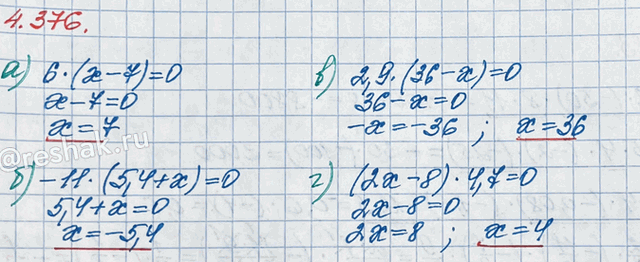 4.376.
а) 6·(x-7)=0
x-7=0
x=7
б) -11·(5,4+x)=0
5,4+x=0
x=-5,4
в) 2,9·(36-x)=0
36-x=0
-x=-36 ; x=36
г) (2x-8)·4,7=0
2x-8=0
2x=8 ; x=4
@reshak.ru